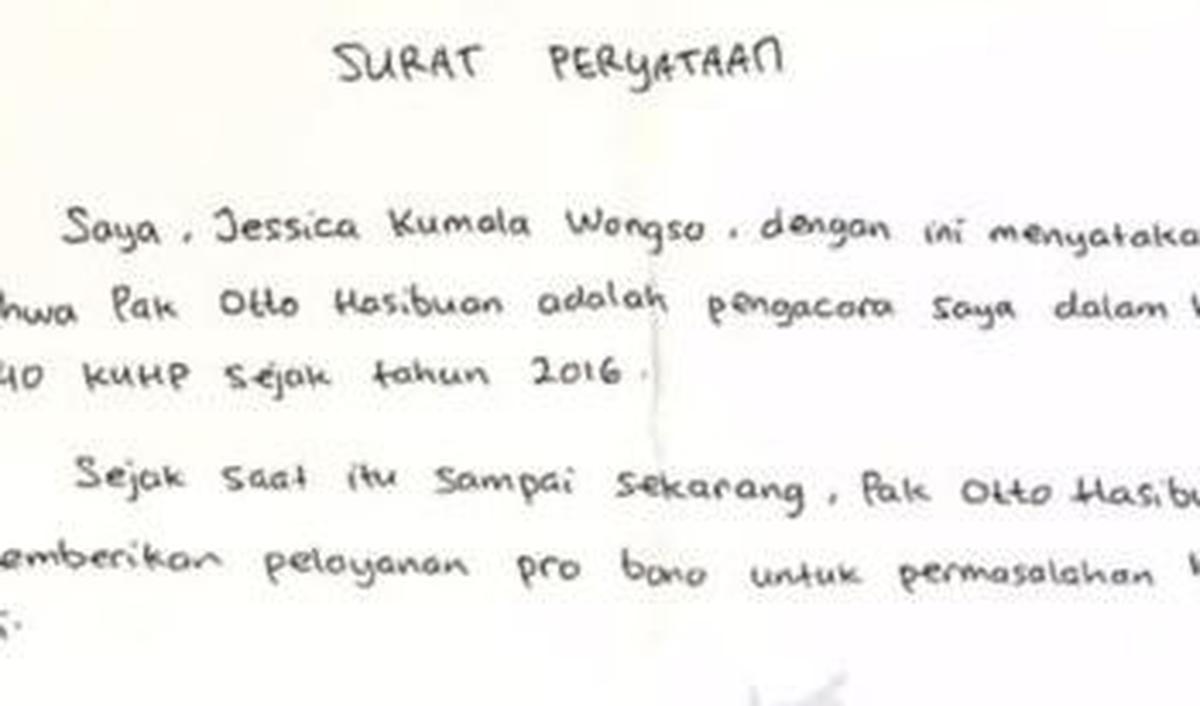 SURAT PERYATAAN
Saya, Jessica Kumala Wongso, dengan ini menyataka
hwa Pak Otto Hasibuan adalah pengacara saya dalam
40 KUHP sejak tahun 2016.
Sejak saat itu sampai sekarang, Pak Otto Hasibu
emberikan pelayanan pro bono untuk permasalahan